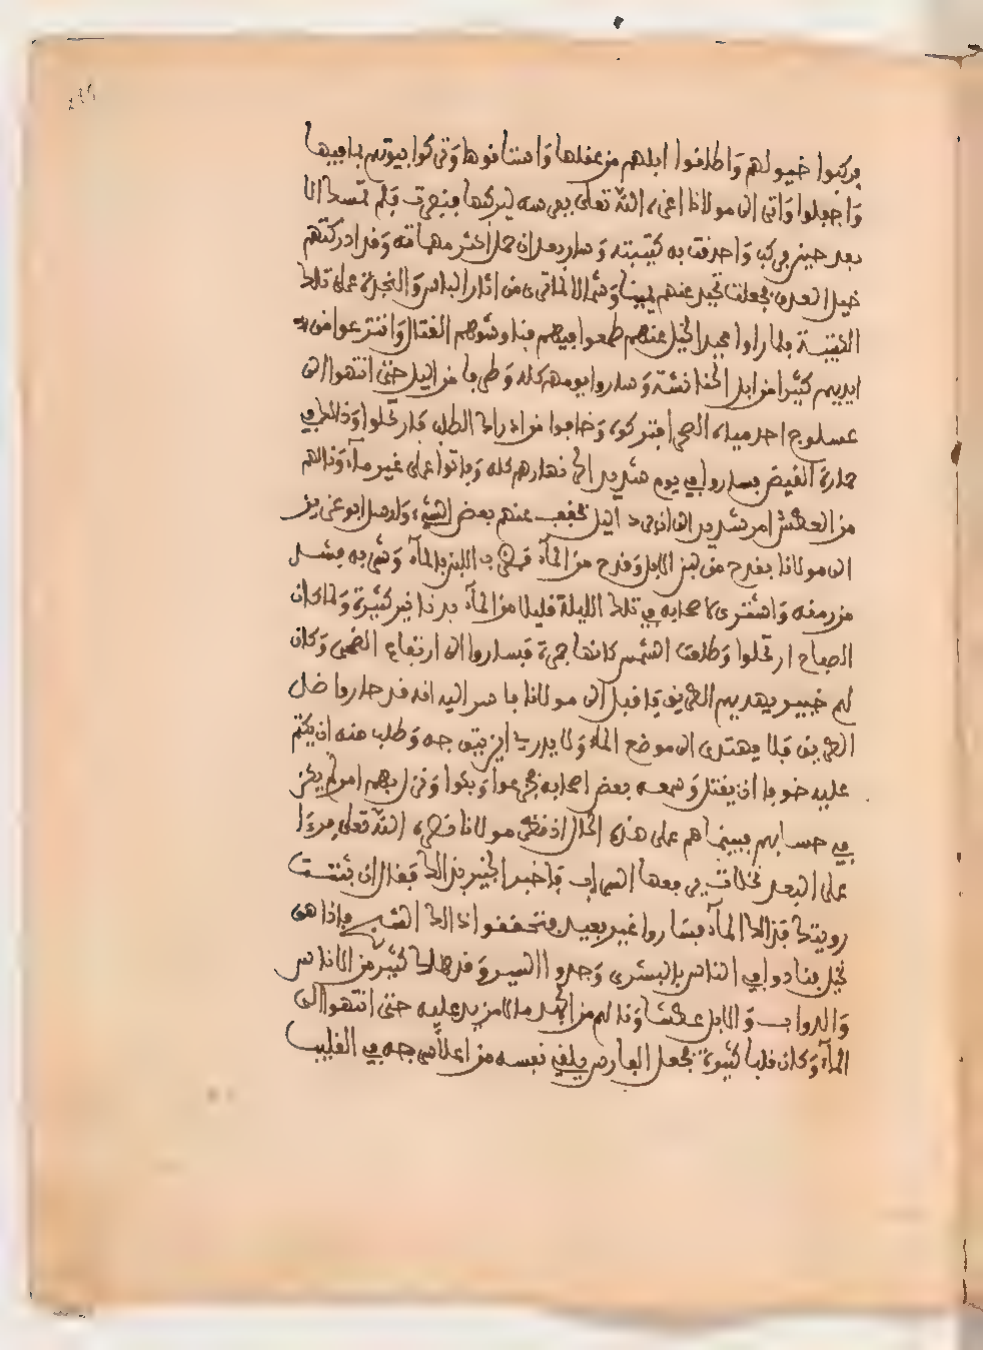 فركبوا خيولهم وَاطلقوا ابلهم من عقلها وَاستاقوها وَتركوا بيوتهم بما فيها
وَاجفلوا وَاتى الى مولانا اعزه اللّه تعالى بفرسه ليركبها فنفرت فلم تمسك الا
بعد حين فركب وَاحدقت به كتيبته وَسار بعد ان حمل اكثر مهماته وَقد ادركتهم
خيل العدو فجعلت تحيد عنهم يمينا وَشمالا لما ترى من اثار الباس وَالنجدة على تلك
الكتيبة فلما راوا محيد الخيل عنهم طمعوا فيهم فناوشوهم القتال وَانتزعوا من
ايديهم كثيرا من ابل الخنانشة وَساروا يومهم كله وَطرفا من اليل حتى انتهوا الى
عسلوج احد مياه الصحرا فتركوه وَخافوا من ادراك الطلب فارتحلوا وَذلك في
حمارة القيض فساروا في يوم شديد الحر نهارهم كله وَباتوا على غير ماء وَنالهم
من العطش امر شديد الى ان برد اليل فخفف عنهم بعض الشيء وَارسل ابو عزيز
الى مولانا بقدح من لبن الابل وَقدح من الماء فمزج اللبن بالماء وَشربه فشد
من رمقه وَاشترى لاصحابه في تلك الليلة قليلا من الماء بدنانير كثيرة وَلما كان
الصباح ارتحلوا وَطلعت الشمس كانها جمرة فساروا الى ارتفاع الضحى وَكان
لهم خبير يهديهم الطريق فاقبل الى مولانا فاسر اليه انه قد حار وَاضل
الطريق فلا يهتدى الى موضع الماء وَلا يدرى اين يتوجه وَطلب منه ان يكتم
عليه خوفا ان يقتل وَسمعه بعض اصحابه فجزعوا وَبكوا وَنزل بهم امر لم يكن
في حسابهم فبينما هم على هذه الحال اذ نظر مولانا نصره اللّه تعالى فرءا
على البعد نخلات يرفعها السراب فاخبر الخبير بذالك فقال ان ثبتت
رويتك فذالك الماء فساروا غير بعيد فتحققوا ذالك الشبح فاذا هى
نخيل فنادوا في الناس بالبشرى وَجدوا السير وَقد هلك كثير من الاناس
وَالدواب وَالابل عطشا وَنالهم من الجهد ما لا مزيد عليه حتى انتهوا الى
الماء وَكان قلبا كثيرة فجعل الفارس يلقي نفسه من اعلا سرجه في القليب